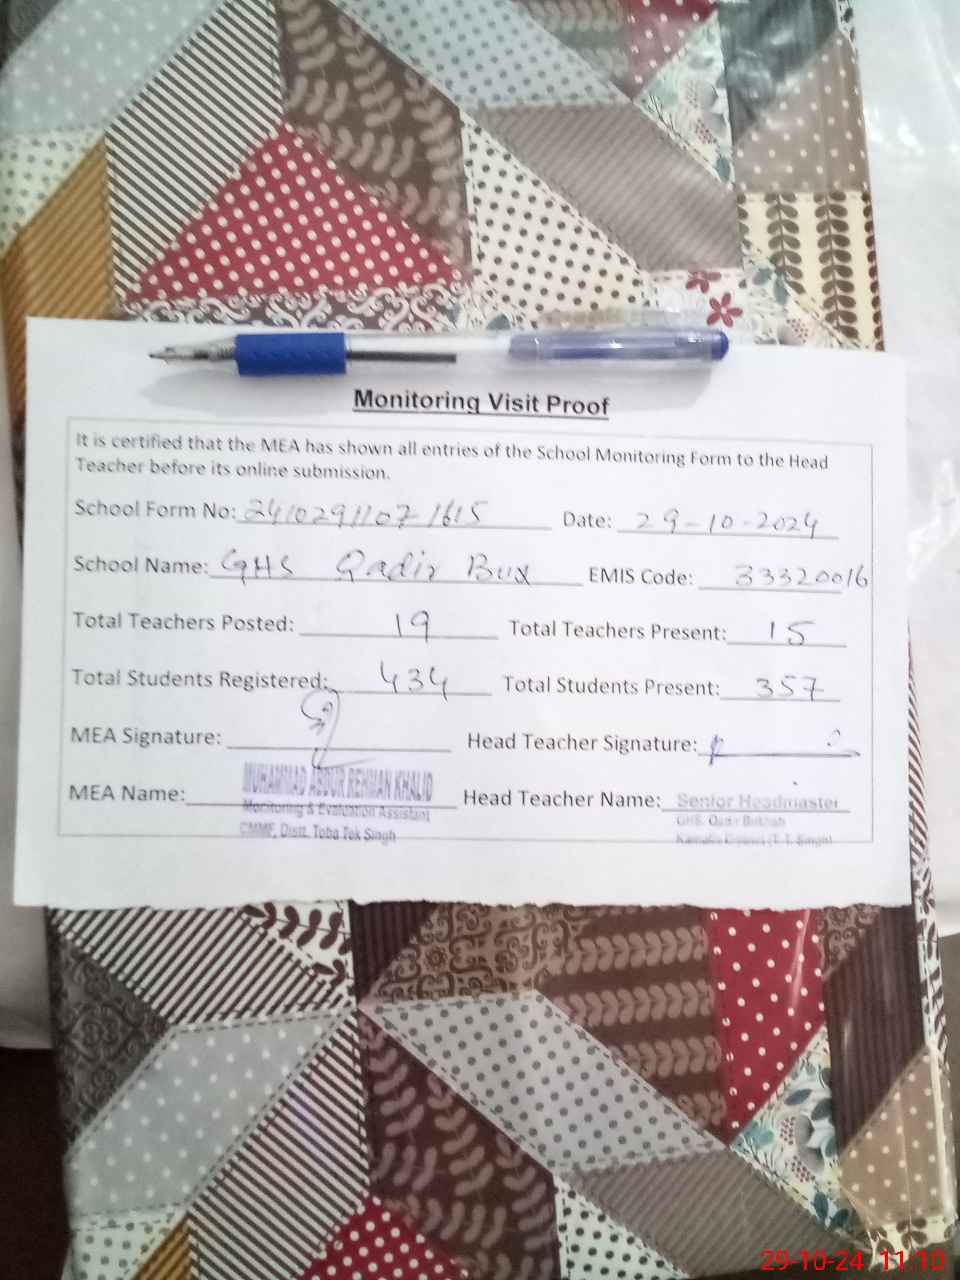 Monitoring Visit Proof
It is certified that the MEA has shown all entries of the School Monitoring Form to the Head
Teacher before its online submission.
School Form No: 24102911071615 Date: 29-10-2024
School Name: GHS Qadir Bux EMIS Code: 33320016
Total Teachers Posted: 19 Total Teachers Present: 15
Total Students Registered: 434 Total Students Present: 357
MEA Signature: Head Teacher Signature:
MEA Name: MUHAMMAD ABDUR REHMAN KHALID Head Teacher Name: Senior Headmaster
Monitoring & Evaluation Assistant GHS, Qadir Bukhsh
CMMF, Distt. Toba Tek Singh (T. T. Singh)
29-10-24 11:10